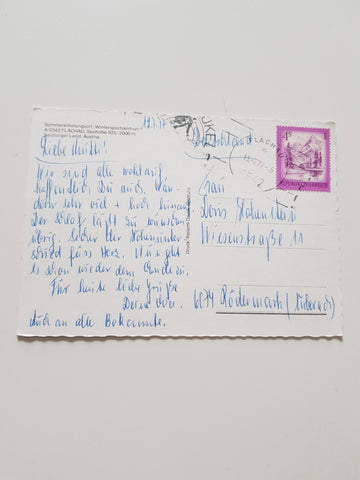 Sommererholungsort, Wintersportzentrum
A-5542 FLACHAU, Seehöhe 925-2000 m
Salzburger Land, Austria
Liebe Mutti!
Wir sind alle wohlauf,
hoffentlich Du auch. Wan-
dern sehr viel + hoch hinaus.
Der Schlaf läßt zu wünschen
übrig, lieber
sind süss Herz. Nun geht
es schon wieder dem Ende zu.
Für heute liebe Grüße
Deine
auch an alle Bekannte.
Deutschland
Frau
Doris
Wiesenstraße 11
6074 Rödermark
FLACHAU
4 S
REPUBLIK ÖSTERREICH